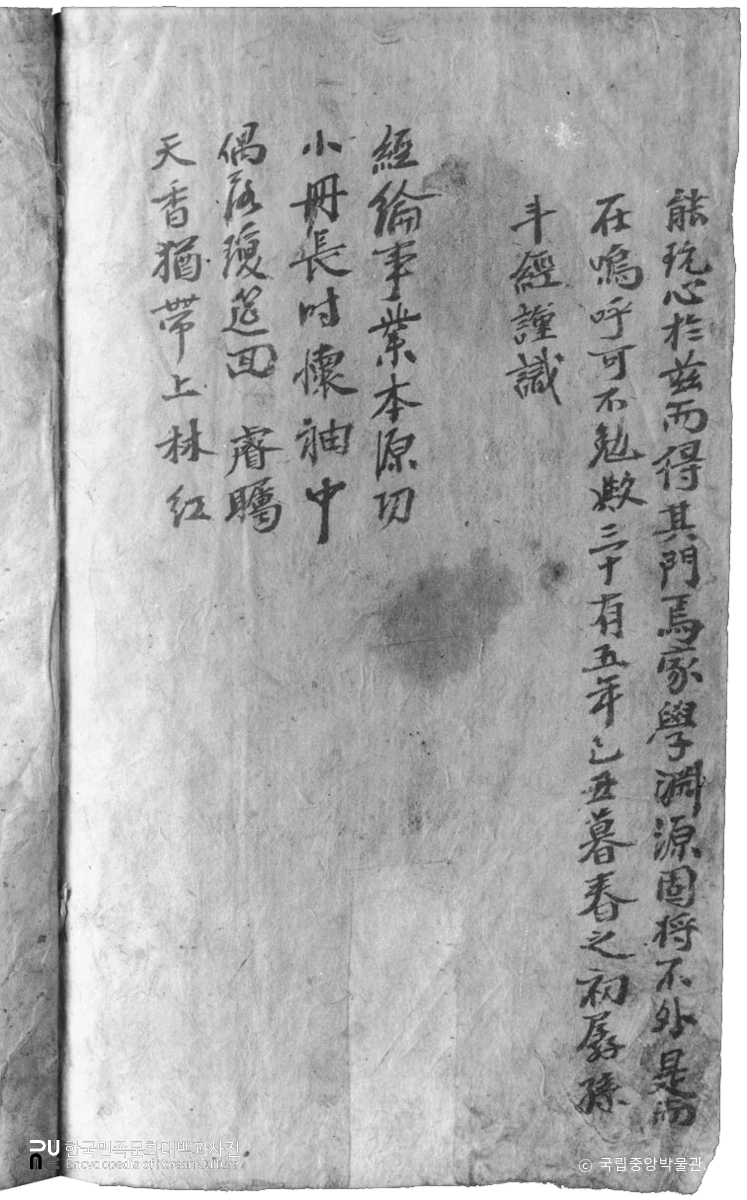 能玩心於玆而得其門焉家學淵源固將不外是而
在嗚呼可不勉歟三十有五年己丑暮春之初孱孫
斗經謹識
經綸事業本源功
小冊長時懷袖中
偶落瓊筵回睿矚
天香猶帶上林紅
한국민족문화대백과사전
Encyclopedia of Korean Culture
© 국립중앙박물관